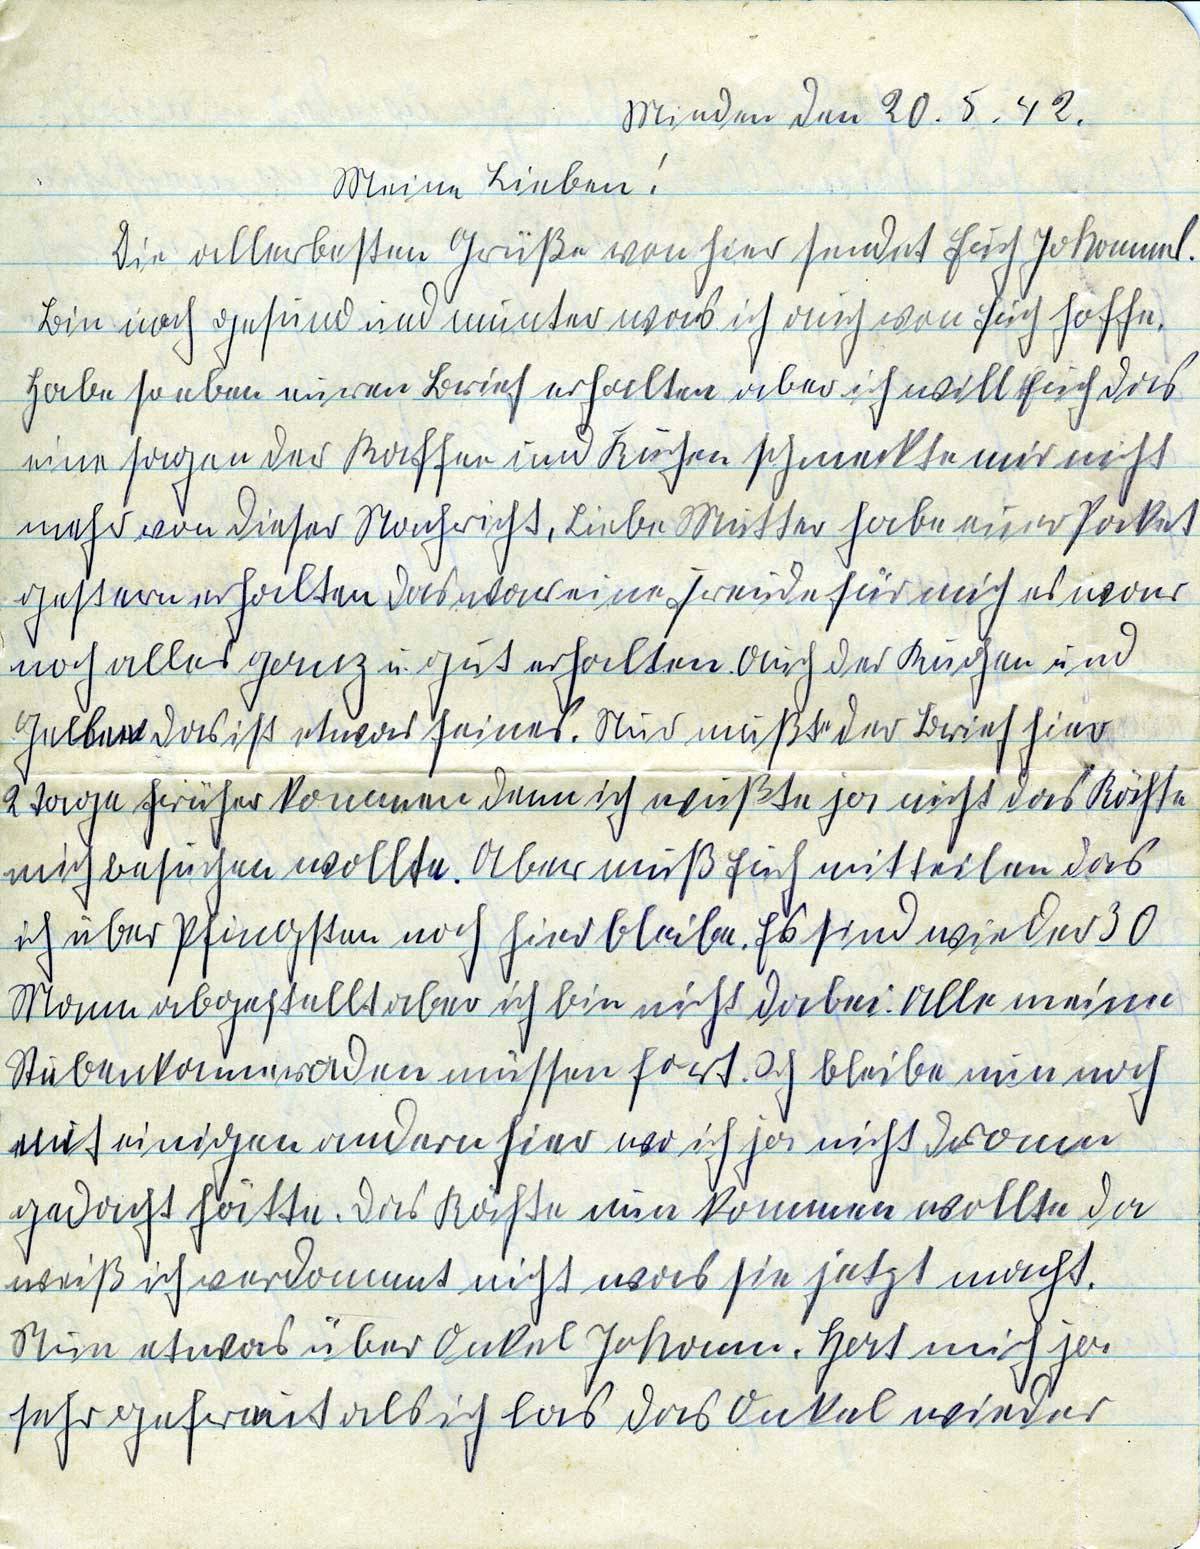 Minden den 20.5.42.
Meine Lieben!
Die allerbesten Grüße von hier sendet Euch
Bin noch gesund und munter was ich auch von Euch hoffe.
Habe soeben euren Brief erhalten aber ich will Euch das
eine sagen der Kaffee und Kuchen schmeckte mir nicht
mehr von dieser Nachricht, Liebe Mutter habe euer Paket
gestern erhalten das war eine Freude für mich es war
noch alles ganz u. gut erhalten. Auch der Kuchen und
das ist etwas feines. Nur mußte der Brief hier
2 tage früher kommen denn ich wußte ja nicht das Käthe
mich besuchen wollte. Aber muß Euch mitteilen das
ich über Pfingsten noch hier bleibe. Es sind wieder 30
Mann abgestellt aber ich bin nicht dabei. Alle meine
Stubenkameraden müssen fort. Ich bleibe nun noch
mit einigen andern hier wo ich ja nicht drann
gedacht hätte. Das Käthe nun kommen wollte da
weiß ich verdammt nicht was sie jetzt macht.
Nun etwas über Onkel Johann. Hat mich ja
sehr gefreut als ich las das Onkel wieder